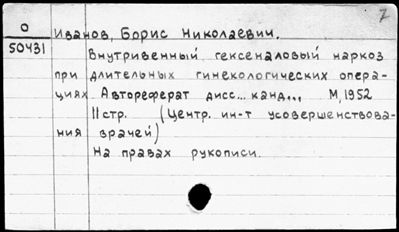 7
О
50431
Иванов, Борис Николаевич.
Внутривенный гексеналовый наркоз
при длительных гинекологических опера-
циях. Автореферат дисс... канд... М, 1952
11 стр. (Центр. ин-т усовершенствова-
ния врачей)
На правах рукописи.